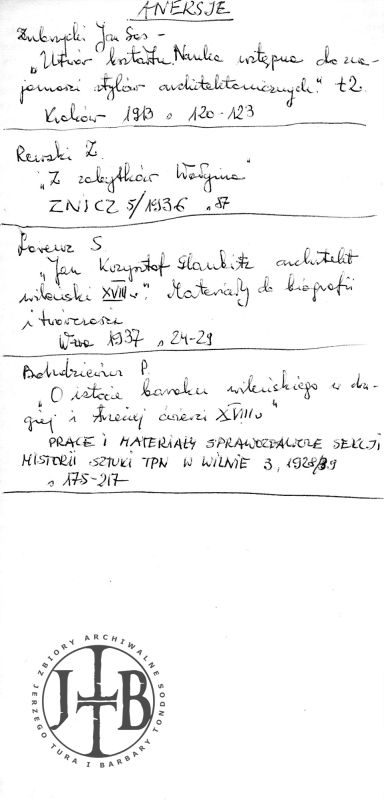 ANEKSJE
Zubrzycki Jan Sas -
"Utwór kształtu. Nauka wstępna do zna-
jomości stylów architektonicznych." t2.
Kraków 1913 s 120-123
Rewski Z.
"Z zabytków Wołynia"
ZNICZ 5/1936 s 87
Lorenz S
"Jan Krzysztof Glaubitz architekt
wileński XVIII w." Materiały do biografii
i twórczości
W-wa 1937 s 24-29
Bohdziewicz P.
"O istocie baroku wileńskiego w dru-
giej i trzeciej ćwierci XVIII w"
PRACE I MATERIAŁY SPRAWOZDAWCZE SEKCJI
HISTORII SZTUKI TPN W WILNIE 3, 1938/39
s 175-217
ZBIORY ARCHIWALNE
JERZEGO TURA I BARBARY TONDOS
JTB